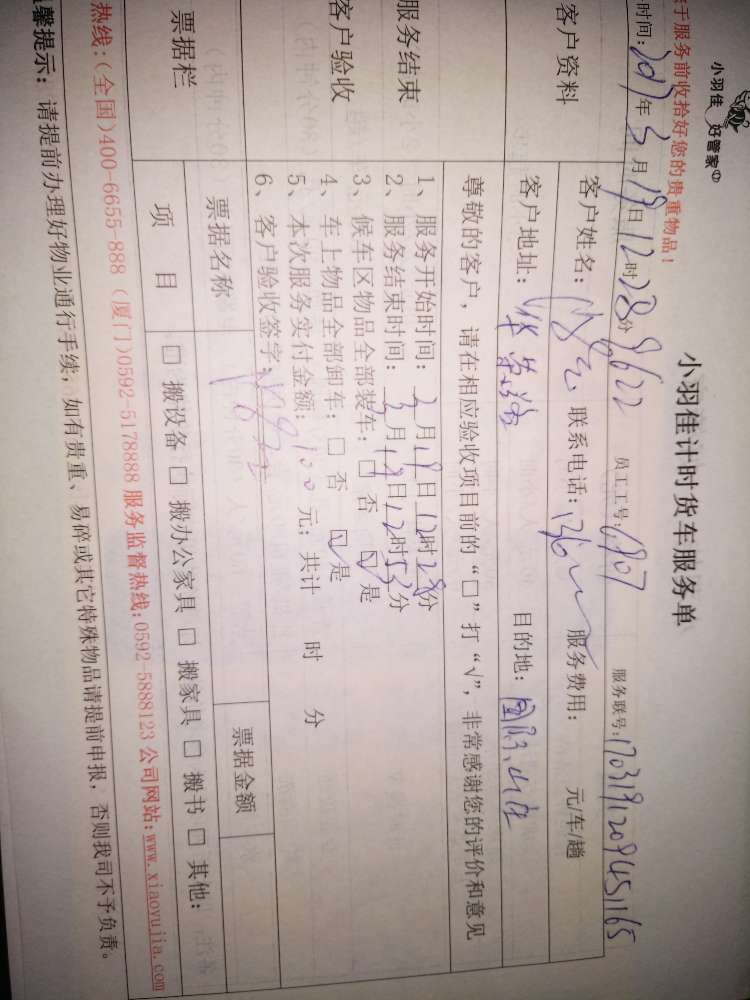 小羽佳 好管家
小羽佳计时货车服务单
于服务前收拾好您的贵重物品！
时间：2017年3月19日12时28分 8622 员工工号：6807 服务联号：170319120945165
客户资料
客户姓名： 联系电话：136 服务费用： 元/车/趟
客户地址： 目的地：
尊敬的客户，请在相应验收项目前的“□”打“√”，非常感谢您的评价和意见
服务结束
客户验收
1、服务开始时间：3月19日12时28分
2、服务结束时间：3月19日12时53分
3、候车区物品全部装车：□ 否 ☑ 是
4、车上物品全部卸车：□ 否 ☑ 是
5、本次服务实付金额：100元；共计 时 分
6、客户验收签字：
票据栏
票据名称 票据金额
项 目 □ 搬设备 □ 搬办公家具 □ 搬家具 □ 搬书 □ 其他：
热线：(全国)400-6655-888 (厦门)0592-5178888 服务监督热线：0592-5888123 公司网站：www.xiaoyujia.com
馨提示：请提前办理好物业通行手续，如有贵重、易碎或其它特殊物品请提前申报，否则我司不予负责。